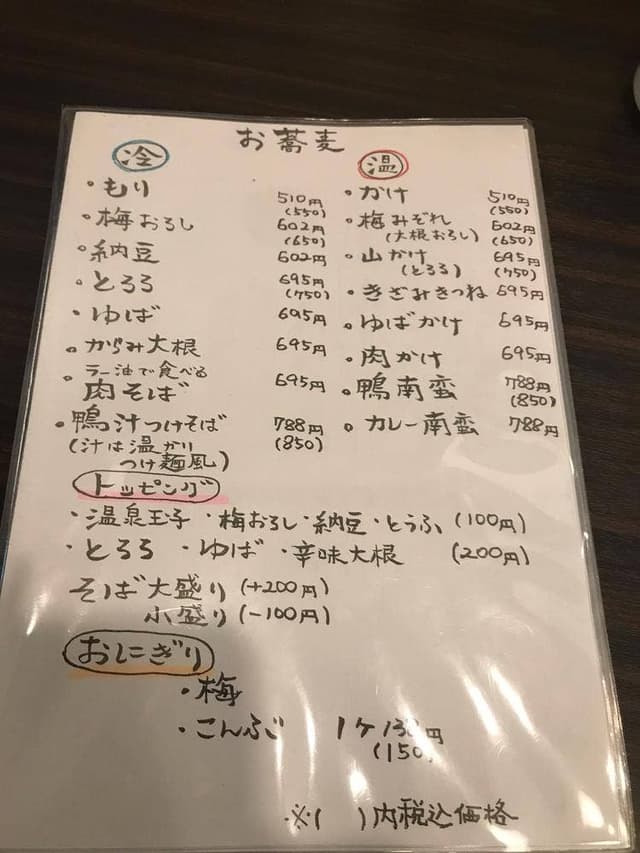 お蕎麦
冷
・もり 510円
(550)
・梅おろし 602円
(650)
・納豆 602円
・とろろ 695円
(750)
・ゆば 695円
・からみ大根 695円
・ラー油で食べる
肉そば 695円
・鴨汁つけそば 788円
(汁は温かり (850)
つけ麺風)
温
・かけ 510円
(550)
・梅みぞれ 602円
(大根おろし) (650)
・山かけ 695円
(とろろ) (750)
・きざみきつね 695円
・ゆばかけ 695円
・肉かけ 695円
・鴨南蛮 788円
(850)
・カレー南蛮 788円
トッピング
・温泉玉子 ・梅おろし・納豆・とうふ (100円)
・とろろ ・ゆば ・辛味大根 (200円)
そば大盛り (+200円)
小盛り (-100円)
おにぎり
・梅
・こんぶ 1ケ 円
(150)
※( )内税込価格